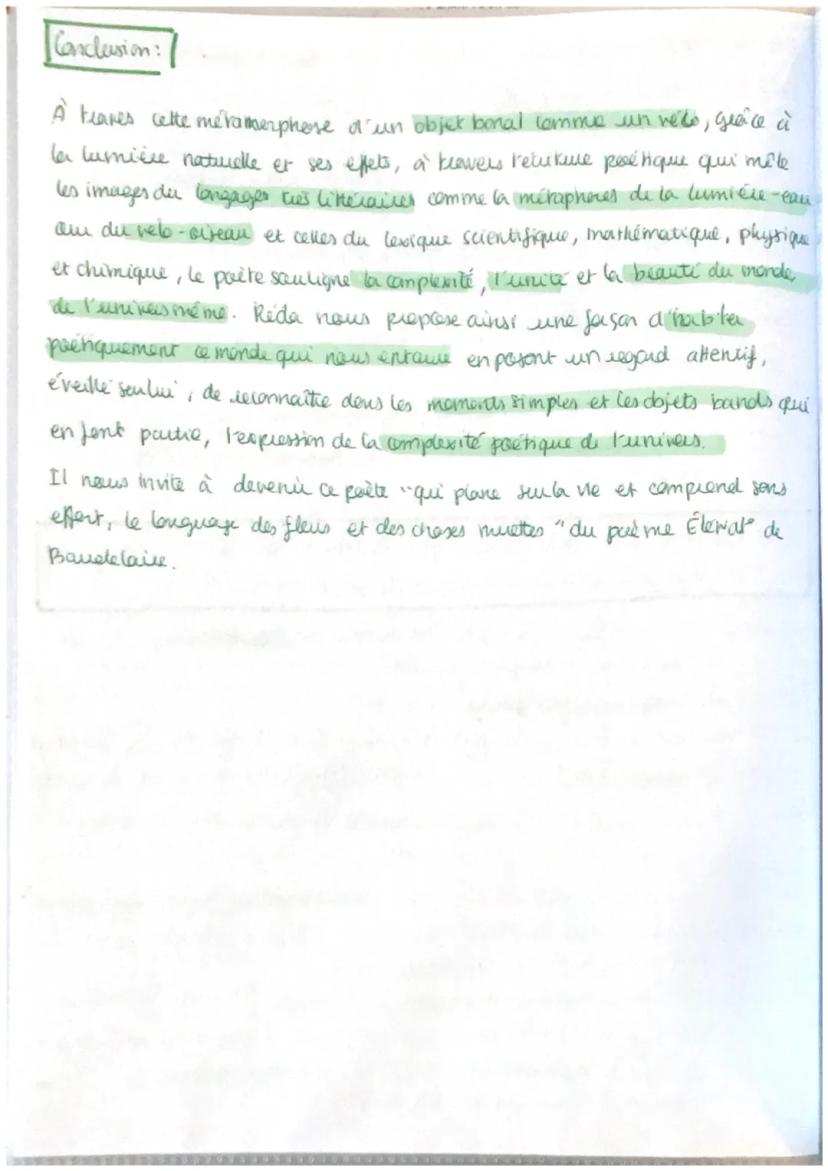 Conclusion :
À travers cette métamorphose d'un objet banal comme un vélo, grâce à
la lumière naturelle et ses effets, à travers l'écriture poétique qui mêle
les images du langages très littéraires comme la métaphores de la lumière-eau
ou du vélo-oiseau et celles du lexique scientifique, mathématique, physique
et chimique, le poète souligne la complexité, l'unité et la beauté du monde,
de l'univers même. Réda nous propose ainsi une façon d'habiter
poétiquement ce monde qui nous entoure en posant un regard attentif,
éveillé sur lui, de reconnaître dans les moments simples et les objets banals qui
en font partie, l'expression de la complexité poétique de l'univers.
Il nous invite à devenir ce poète "qui plane sur la vie et comprend sans
effort, le language des fleurs et des choses muettes" du poème Élévat° de
Baudelaire.